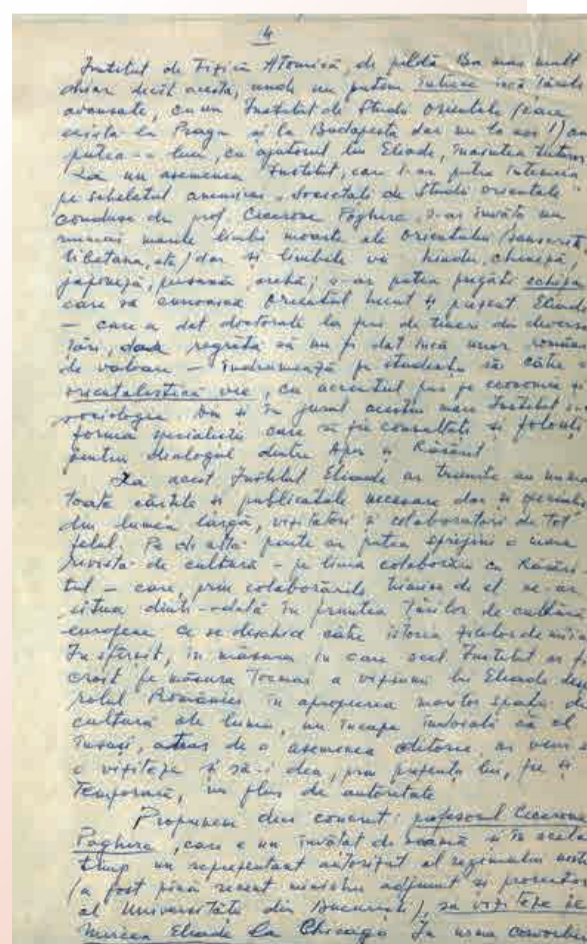 4
Institut de Fizică Atomică, de pildă. Ba mai mult
chiar decît acesta, unde nu putem întrece încă țările
avansate, cu un Institut de Studii orientale (care
există la Praga și la Budapesta dar nu la noi!) am
putea lua, cu ajutorul lui Eliade, înaintea
La un asemenea Institut, care s-ar putea întemeia
pe scheletul anemicei Societăți de Studii orientale
conduse de prof. Cicerone Poghirc, s-ar învăța nu
numai marile limbi moarte ale Orientului (sanscrită
tibetana, etc) dar și limbile vii hindu, chineză,
japoneză, persană arabă; s-ar putea pregăti echipe
care să cunoască Orientul trecut și prezent. Eliade
— care a dat doctorate la de tineri din diverse
țări, dar regretă că nu fi dat încă unor români
de valoare — îndrumează pe studenții săi către o
orientalistică vie, cu accentul pus pe economie și
sociologie. Așa și în jurul acestui mare Institut s-ar
forma specialiști care să fie consultați și folosiți
pentru dialogul dintre Apus și Răsărit
La acest Institut Eliade ar trimite nu numai
toate cărțile și publicațiile necesare dar și
din lumea largă, vizitatori și colaboratori de tot
felul. Pe de altă parte ar putea sprijini o mare
revistă de cultură — pe linia colaborării cu Răsări-
tul — care, prin colaborările trimise de el ne-ar
situa dintr-odată în fruntea țărilor de cultură
europene ce se deschid către istoria zilelor de mîine
În sfîrșit, în măsura în care acel Institut ar fi
croit pe măsura tocmai a viziunii lui Eliade despre
rolul României în apropierea marilor spații de
cultură ale lumii, nu încape îndoială că el
însuși, atras de o asemenea ctitorie, ar veni
s-o viziteze și să-i dea, prin prezența lui, fie și
temporară, un plus de autoritate
Propunem deci concret: profesorul Cicerone
Poghirc, care e un învățat de seamă și în același
timp un reprezentant autorizat al regimului nostru
(a fost pînă recent ministru adjunct și prorector
al Universității din București), să viziteze pe
Mircea Eliade la Chicago. În urma